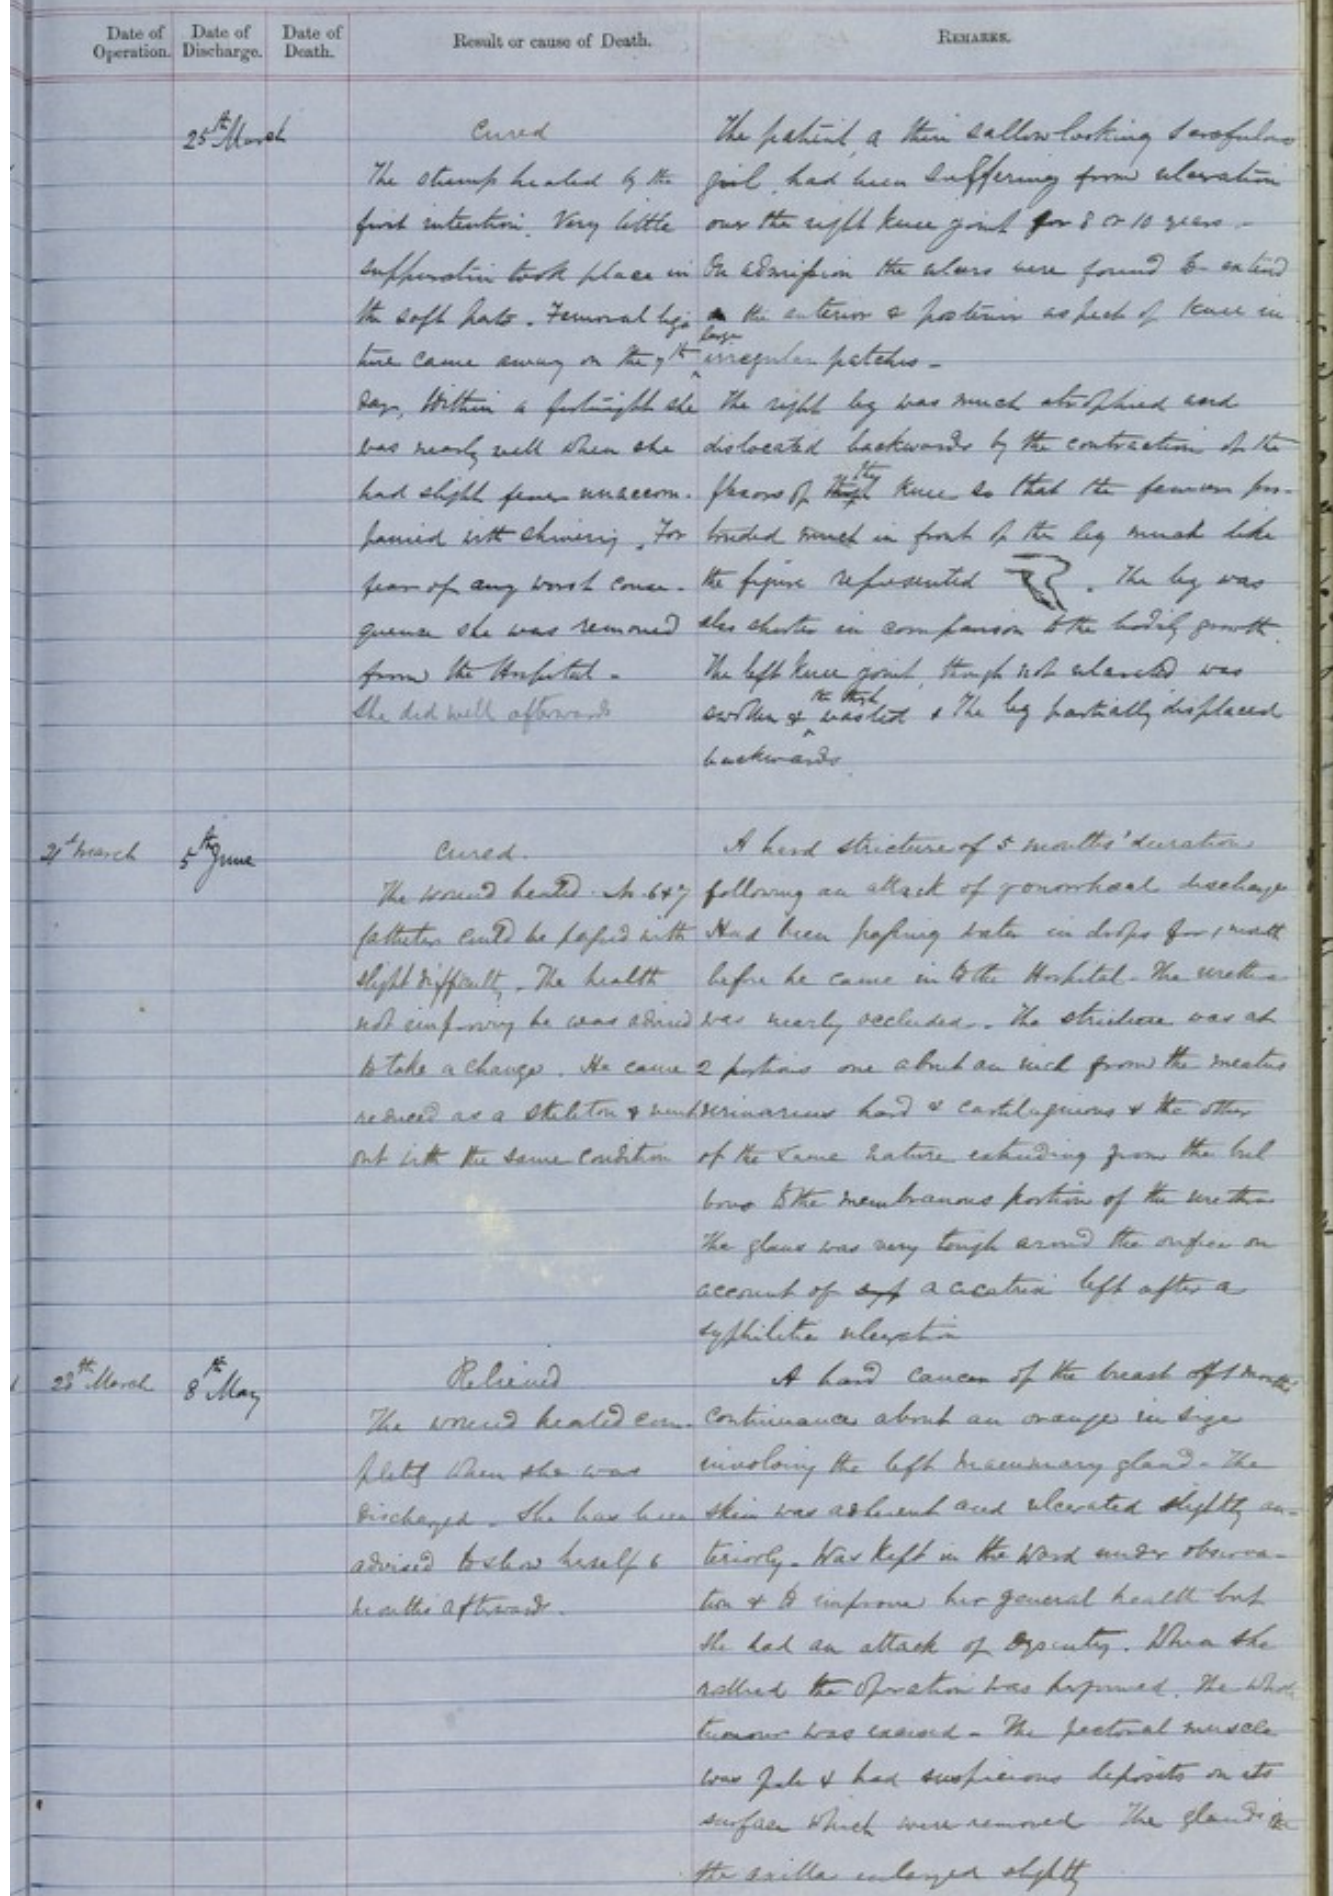 Date of Operation.
Date of Discharge.
Date of Death.
Result or cause of Death.
REMARKS.
25th March
Cured
The stump healed by the
first intention. Very little
suppuration took place in
the soft parts. Femoral liga
ture came away on the 7th
day. Within a fortnight she
was nearly well when she
had slight fever unaccom-
panied with shivering. For
fear of any worst conse-
quence she was removed
from the Hospital -
She did well afterwards
The patient, a thin sallow looking scrofulous
girl, had been suffering from ulceration
over the right knee joint for 8 or 10 years -
On admission the ulcers were found to extend
on the anterior & posterior aspect of knee in
large irregular patches -
The right leg was much atrophied and
dislocated backwards by the contraction of the
flexors of the knee so that the femur pro-
truded much in front of the leg much like
the figure represented . The leg was
also shorter in comparison to the bodily growth.
The left knee joint, though not ulcerated was
swollen & the thigh wasted & The leg partially displaced
backwards
21st March
5th June
Cured.
The wound healed. No. 6 & 7
Catheter could be passed with
slight difficulty. The health
not improving he was advised
to take a change. He came
reduced as a skeleton & went
out with the same condition
A hard stricture of 5 months' duration
following an attack of gonorrhoeal discharge
Had been passing water in drops for 1 month
before he came in to the Hospital - The urethra
was nearly occluded. The stricture was at
2 portions one about an inch from the meatus
urinarius hard & cartilaginous & the other
of the same nature extending from the bul
bous to the membranous portion of the urethra
The glans was very tough around the orifice on
account of syp a cicatrix left after a
syphilitic ulceration
28th March
8th May
Relieved
The wound healed com-
pletely when she was
discharged. She has been
advised to show herself 6
months afterwards.
A hard cancer of the breast of months
continuance about an orange in size
involving the left mammary gland - The
skin was adherent and ulcerated slightly an-
teriorly. Was kept in the ward under observa-
tion & to improve her general health but
she had an attack of Dysentery. When she
rallied the operation was performed. The whole
tumour was excised - The pectoral muscle
was pale & had suspicious deposits on its
surface which were removed The glands in
the axilla enlarged slightly